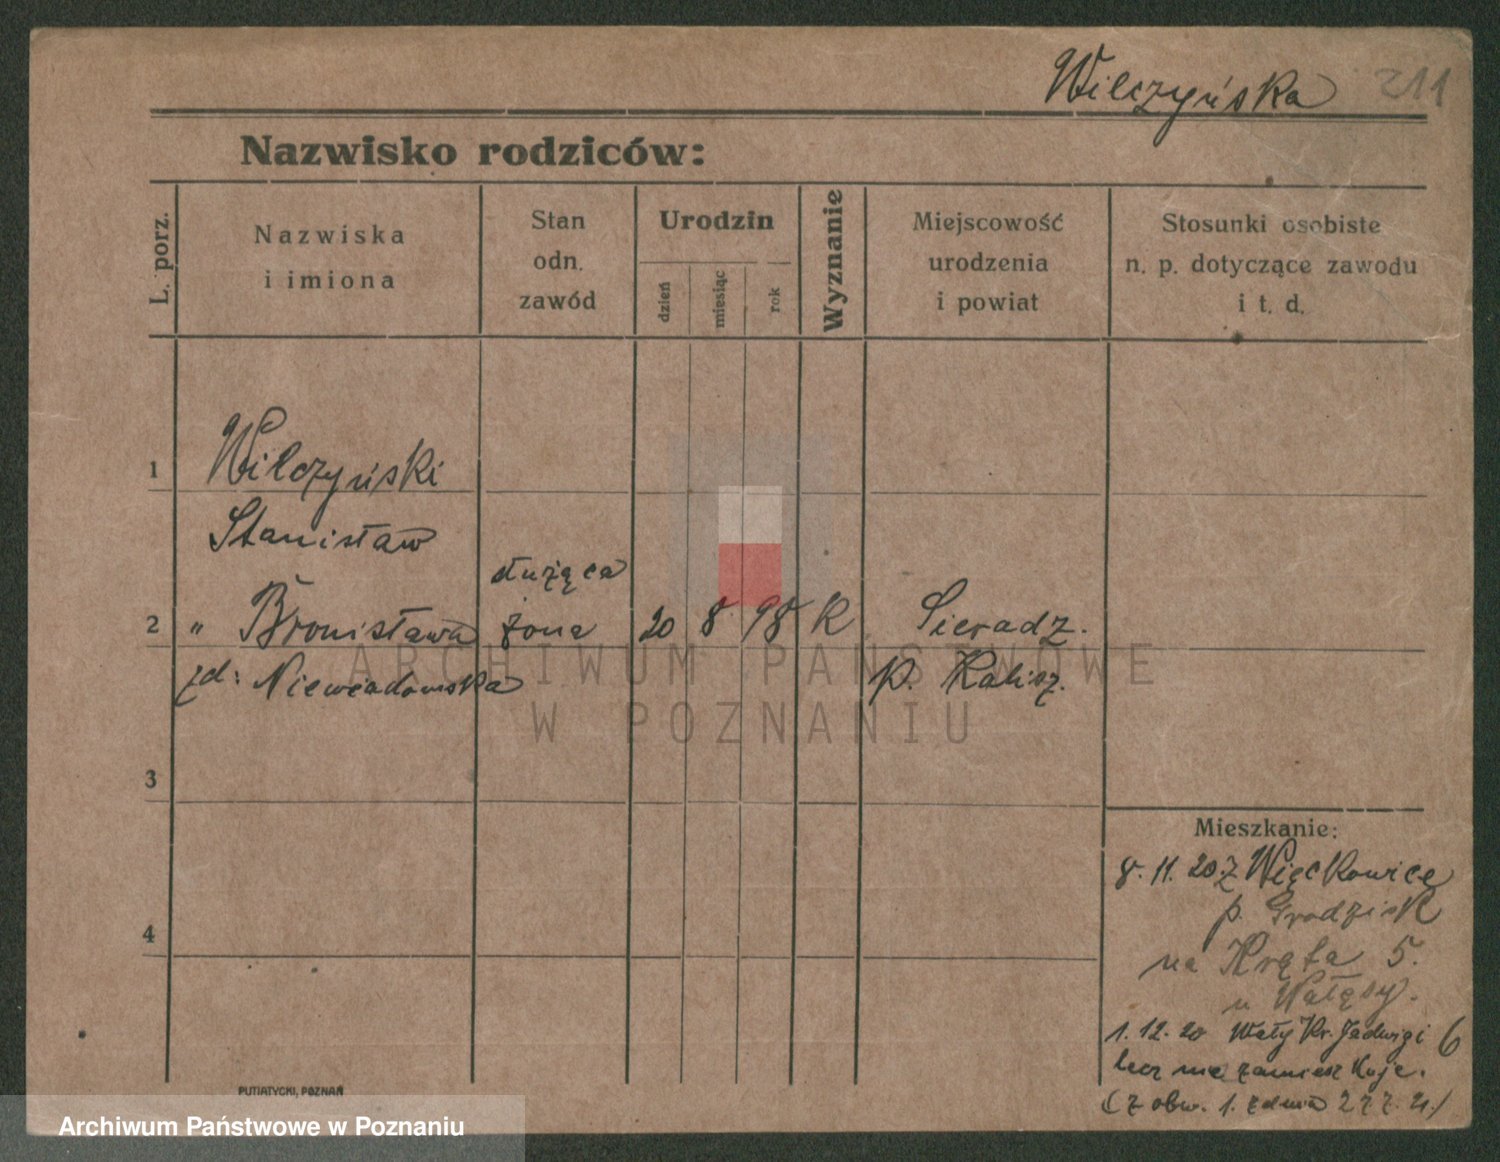 Wilczyńska 211
Nazwisko rodziców:
L. porz.
Nazwiska
i imiona
Stan
odn.
zawód
Urodzin
dzień
miesiąc
rok
Wyznanie
Miejscowość
urodzenia
i powiat
Stosunki osobiste
n. p. dotyczące zawodu
i t. d.
1 Wilczyński
Stanisław
służąca
2 " Bronisława żona 20 8 98 K Sieradz.
zd: Niewiadomska p. Kalisz.
ARCHIWUM PAŃSTWOWE
W POZNANIU
3
4
Mieszkanie:
8. 11. 20. z Więckowice
p. Grodzisk
na Kręta 5.
u Wałęsy.
1. 12. 20 Wały Kr. Jadwigi 6
lecz nie zamieszkuje.
(z obw. 1. z dnia
PUTIATYCKI, POZNAŃ
Archiwum Państwowe w Poznaniu